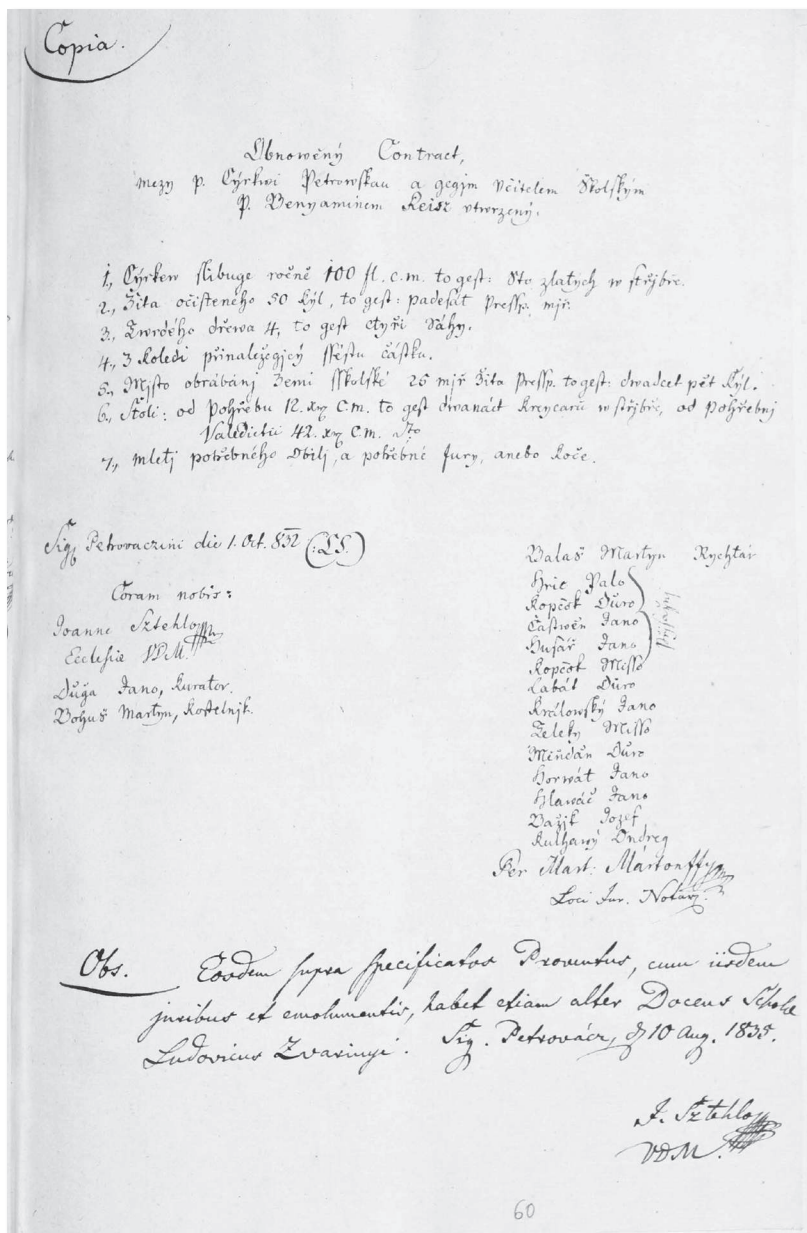 Copia.
Obnowěný Contract,
mezy P. Cýrkwi Petrowskau a gegjm Včitelem Školským
P. Benyaminem Reisz vtwrzený.
1., Cýrkew slibuge ročně 100 fl. c.m. to gest: Sto zlatých w střjbře.
2., Žita očisteného 50 kýl, to gest: padesát Pressp. mjř.
3., Twrdého dřewa 4, to gest čtyři Sáhy.
4., 3 Koledi přinaležegjcý sséstu částku.
5., Mjsto obrábánj Zemi sskolské 25 mjř Žita Pressp. to gest: dwadcet pět kýl.
6., Štoli: od Pohřebu 12. xr C.m. to gest dwanáct Kreycarů w střjbře, od Pohřebnj
Valedictii 42. xr C.m. Dto
7., mletj potřebného Obilj, a potřebné Fury, anebo Koče.
Sig. Petrovaczini die 1. Oct. 832 (:LS:)
Coram nobis:
Joanne Sztehlo
Ecclesiæ VDM.
Ďuga Jano, Kurator.
Bohuš Martyn, Kostelnjk.
Balas Martyn Rychtár
Hric Palo
Kopčok Ďuro
Častwěn Jano
Husár Jano
Kopčok Misso
Labát Ďuro
Králowský Jano
Zeleky Misso
Minďán Ďuro
Horwát Jano
Hlawáč Jano
Važjk Jozef
Kulhawý Ondreg
Per Mart: Mártonffy
Loci Jur. Notar.
Obs. Eosdem supra specificatos Proventus, cum iisdem
juribus et emolumentis, habet etiam alter Docens Scholæ
Ludovicus Zvarinyi. Sig. Petrovácz, d 10 Aug. 1835.
J. Sztehlo
VDM.
60